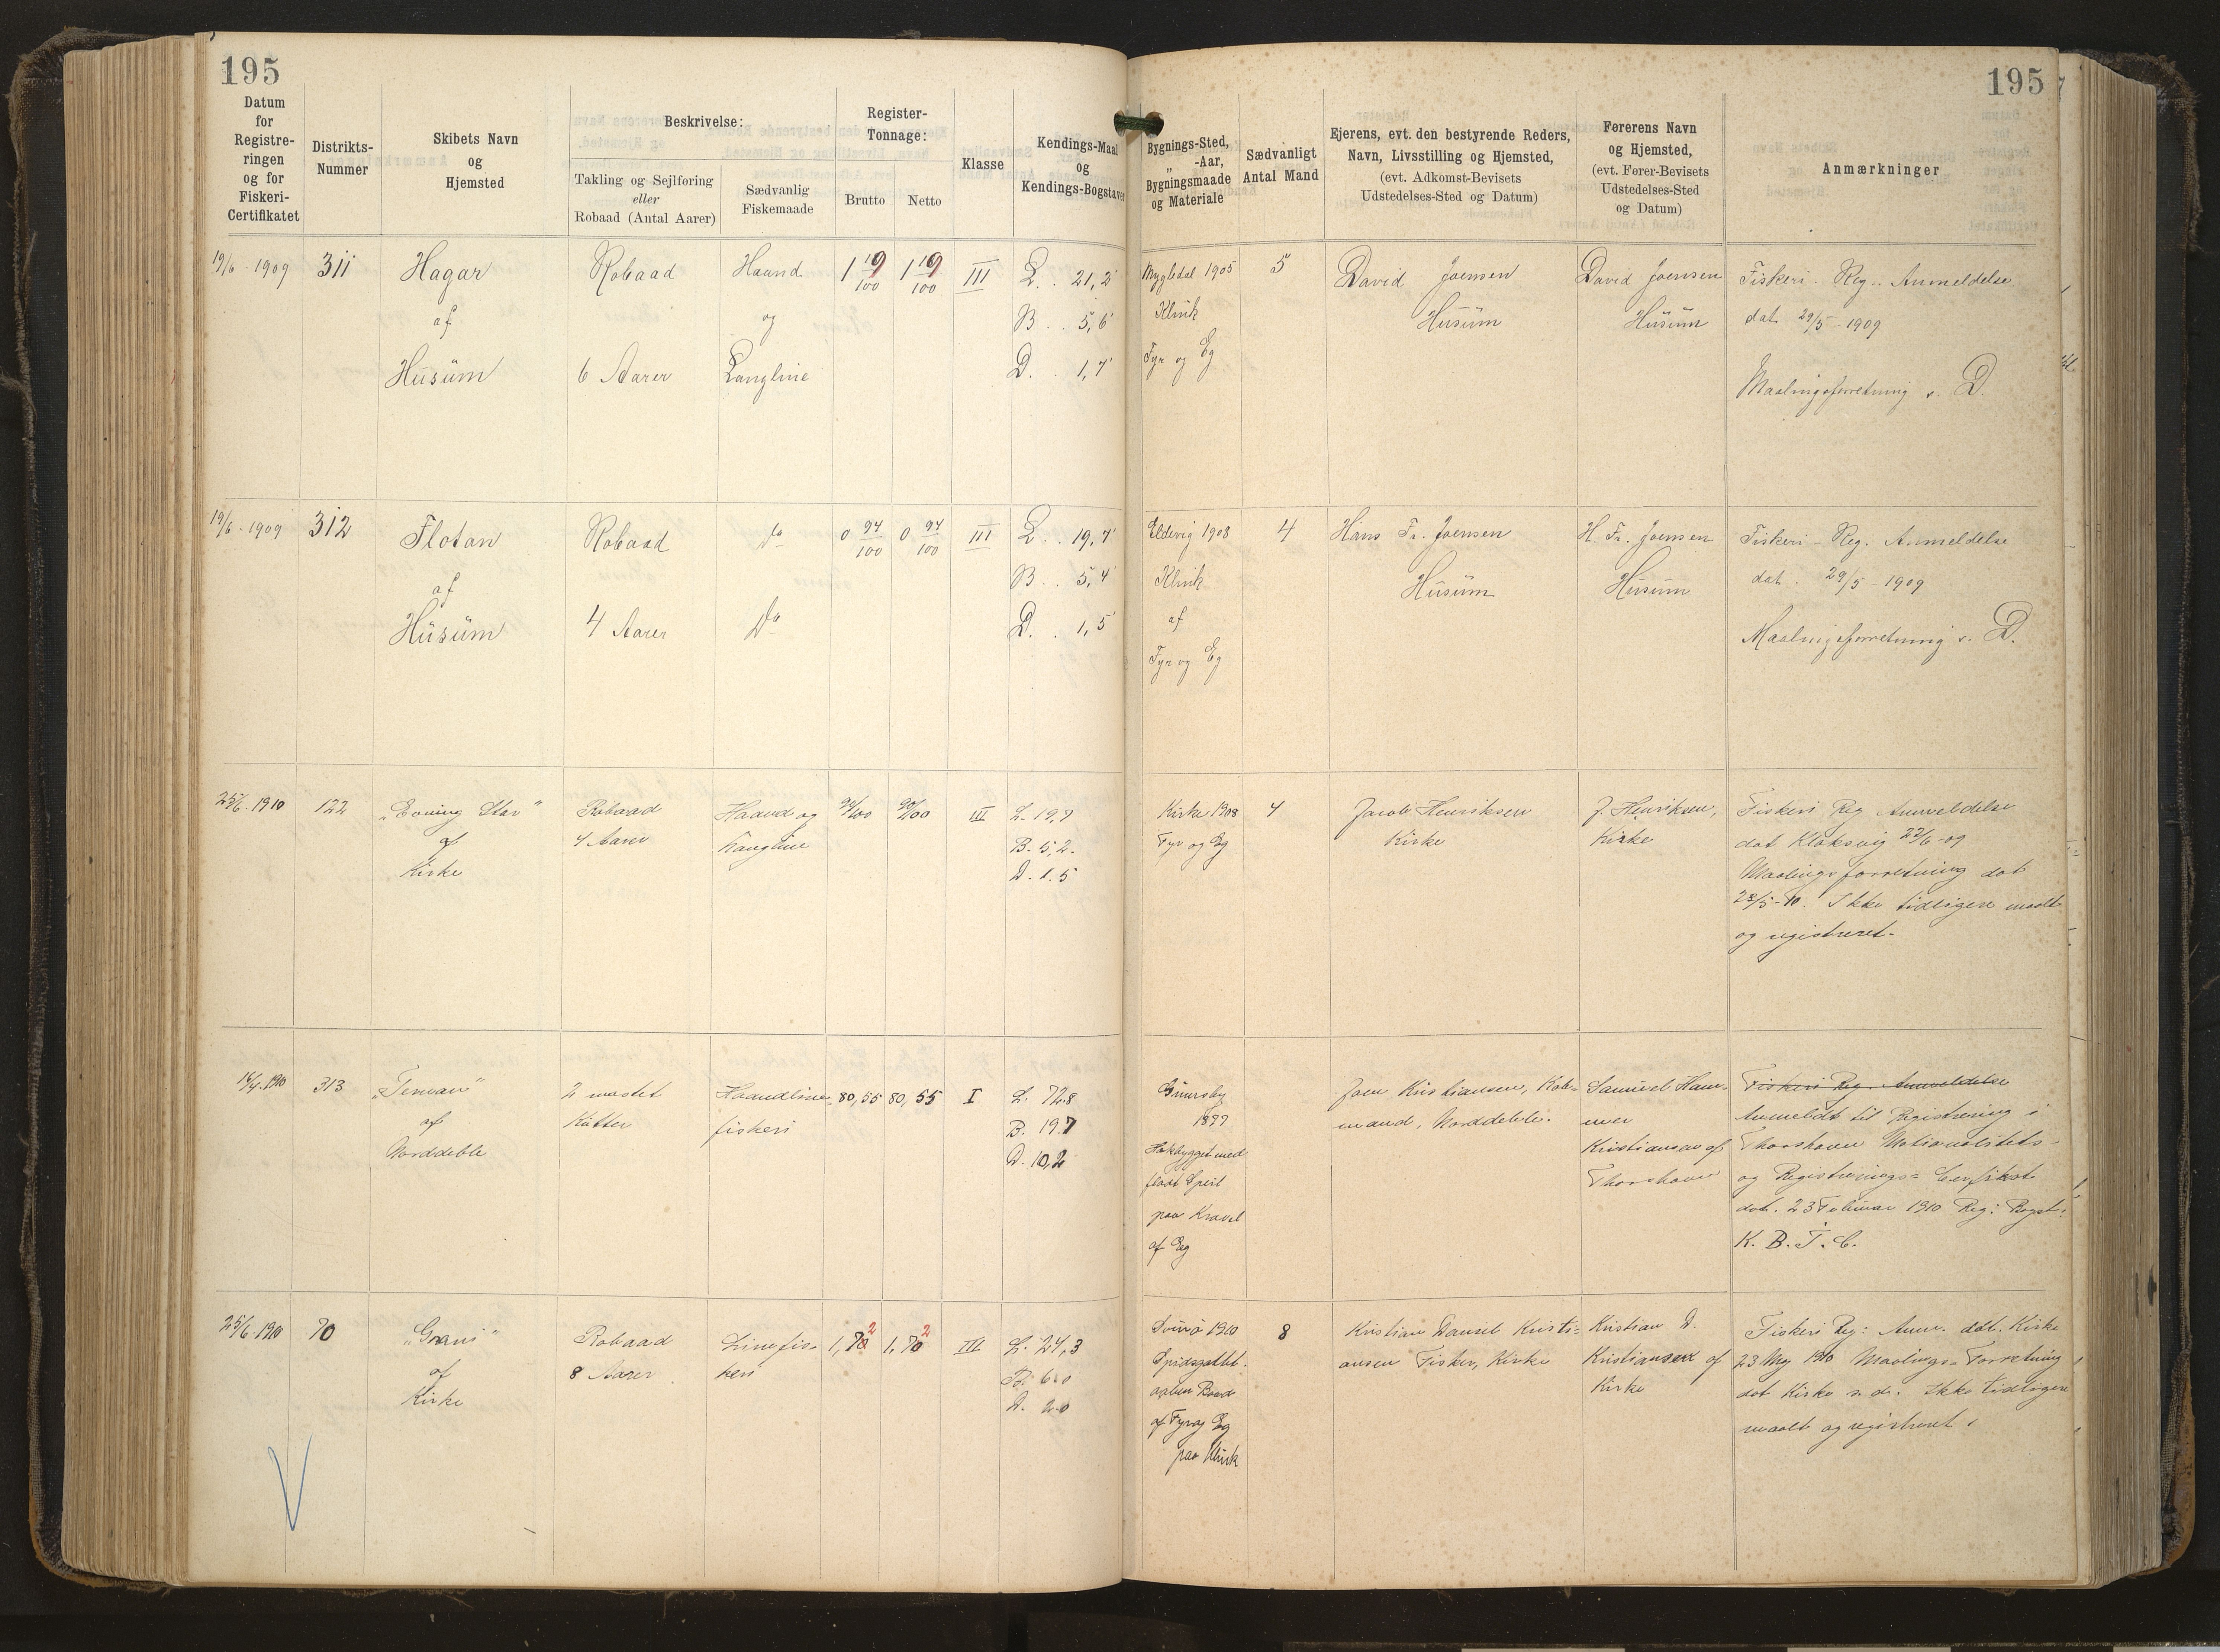 195
195
Datum
for
Registre-
ringen
og for
Fiskeri-
Certifikatet
Distrikts-
Nummer
Skibets Navn
og
Hjemsted
Beskrivelse:
Takling og Sejlføring
eller
Robaad (Antal Aarer)
Sædvanlig
Fiskemaade
Register-
Tonnage:
Brutto
Netto
Klasse
Kendings-Maal
og
Kendings-Bogstaver
Bygnings-Sted,
„ -Aar,
Bygningsmaade
og Materiale
Sædvanligt
Antal Mand
Ejerens, evt. den bestyrende Reders,
Navn, Livsstilling og Hjemsted,
(evt. Adkomst-Bevisets
Udstedelses-Sted og Datum)
Førerens Navn
og Hjemsted,
(evt. Fører-Bevisets
Udstedelses-Sted
og Datum)
Anmærkninger
19/6 - 1909
311
Hagar
af
Husum
Robaad
6 Aarer
Haand
og
Langline
1 19/100
1 19/100
III
L. . 21,2'
B . . 5,6'
D. . 1,7'
Mygledal 1905
Klink
Fyr og Eg
5
David Joensen
Husum
David Joensen
Husum
Fiskeri - Reg. - Anmeldelse
dat 29/5 - 1909
Maalingsforretning s. D.
19/6 - 1909
312
Flotan
af
Husum
Robaad
4 Aarer
Do
Do
0 94/100
0 94/100
III
L. . 19,7'
B . . 5,4'
D. . 1,5'
Eldevig 1908
Klink
af
Fyr og Eg
4
Hans Fr. Joensen
Husum
H. Fr. Joensen
Husum
Fiskeri - Reg. Anmeldelse
dat. 29/5 - 1909
Maalingsforretning s. D.
25/6 - 1910
122
„Evning Star"
af
Kirke
Robaad
4 Aarer
Haand og
Langline
90/100
90/100
III
L. 19,7
B. 5,2.
D. 1.5
Kirke 1908
Fyr og Eg
4
Jacob Henriksen
Kirke
J. Henriksen,
Kirke
Fiskeri Reg Anmeldelse
dat Klaksvig 22/6 - 09
Maalingsforretning dat
28/5 - 10. Ikke tidligere maalt
og registreret.
14/4 - 1910
313
af
Norddeble
2 mastet
Kutter
Haandline
fiskeri
80,55
80,55
I
L. 72.8
B. 19.7
D. 10,2
Grimsby
1877
Hækbygget med
fladt Speil
paa Kravel
af Eg
Joen Kristiansen, Køb-
mand, Norddeble.
Samuel Ham-
mer
Kristiansen af
Thorshavn
Fiskeri Reg. Anmeldelse
Anmeldt til Registrering i
Thorshavn Nationalitets-
og Registrerings-Certifikat
dat. 23 Februar 1910 Reg: Bogst:
K. B. T. C.
25/6 - 1910
70
„Grani"
af
Kirke
Robaad
8 Aarer
Linefis-
keri
1,702
1,702
III
L. 24,3
B. 6.0
D. 2.0
Svinø 1910
Spidsgattet
aaben Baad
af Fyr og Eg
paa Klink
8
Kristian Daniel Kristi-
ansen Fisker, Kirke
Kristian D.
Kristiansen af
Kirke
Fiskeri Reg: Anm. dat. Kirke
23 Maj 1910 Maalings-Forretning
dat Kirke s. d. Ikke tidligere
maalt og registreret.